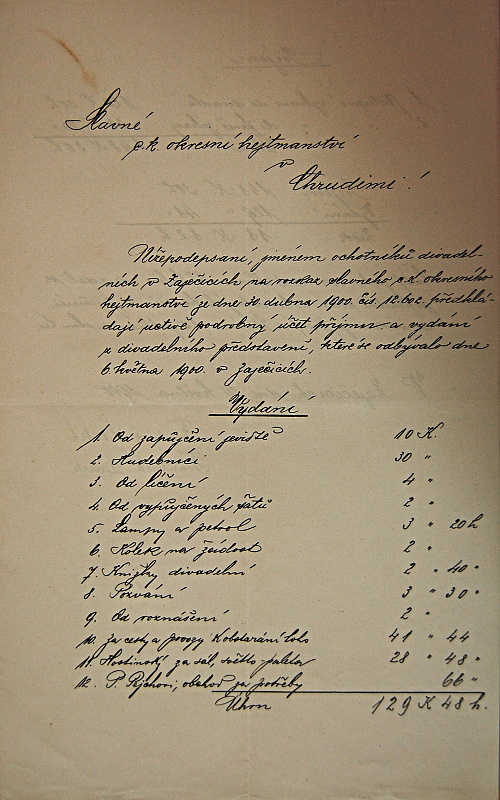 Slavné
c. k. okresní hejtmanství
v
Chrudimi!
Nížepodepsaní, jménem ochotníků divadel-
ních v Zaječicích na rozkaz slavného c. k. okresního
hejtmanství ze dne 30. dubna 1900. čís. 12.602. předklá-
dají uctivě podrobný účet příjmu a vydání
z divadelního představení, které se odbývalo dne
6. května 1900. v Zaječicích.
Vydání
1. Od zapůjčení jeviště 10 K.
2. Hudebníci 30 "
3. Od líčení 4 "
4. Od vypůjčených šatů 2 "
5. Lampy a petrol 3 " 20 h
6. Kolek na žádost 2 "
7. Knížky divadelní 2 " 40 "
8. Pozvání 3 " 30 "
9. Od roznášení 2 "
10. Za cesty a povozy k obstarání toho 41 " 44
11. Hostinský za sál, světlo 28 " 48 "
12. P. obchod za potřeby 66 "
Úhrn 129 K 48 h.